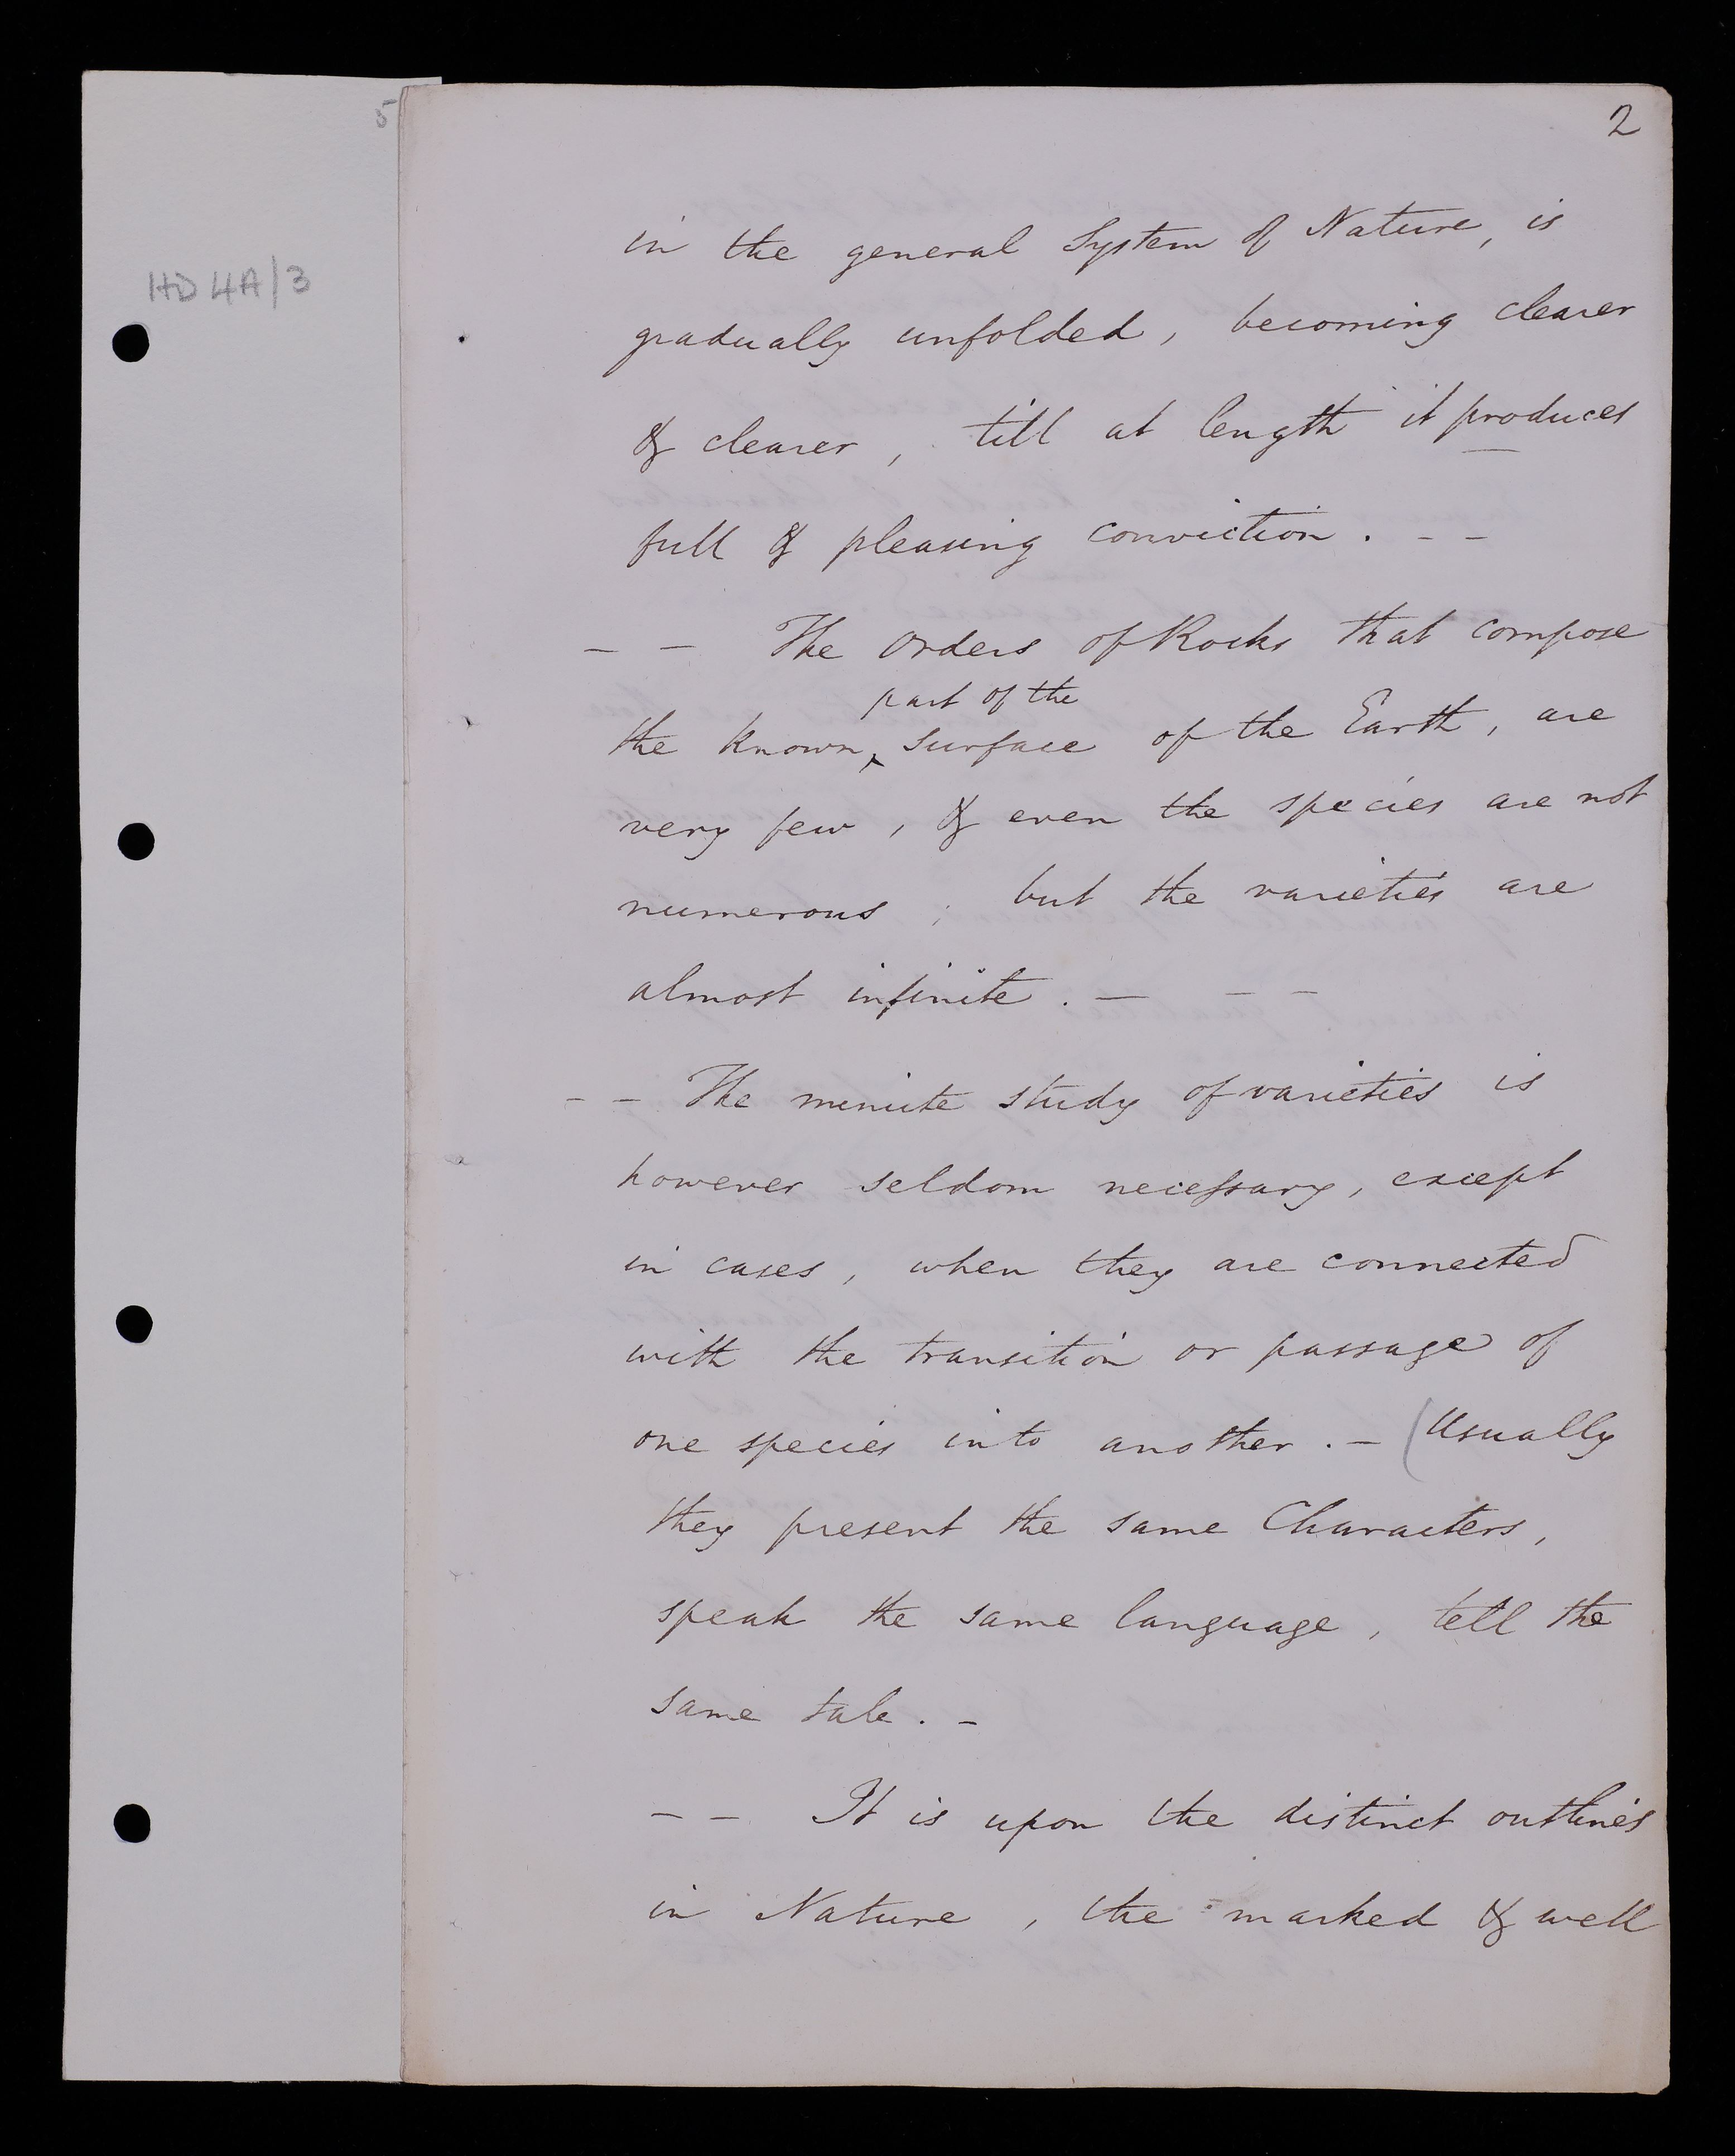 5
2
HD 4A/3
in the general System of Nature, is
gradually unfolded, becoming clearer
& clearer, till at length it produces
full & pleasing conviction. - -
- - The Orders of Rocks that compose
part of the
the known ‸ surface of the Earth, are
very few, & even the species are not
numerous; but the varieties are
almost infinite. - - -
- - The minute study of varieties is
however seldom necessary, except
in cases, when they are connected
with the transition or passage of
one species into another. - (Usually
they present the same Characters,
speak the same language, tell the
same tale. -
- - It is upon the distinct outlines
in Nature, the marked & well